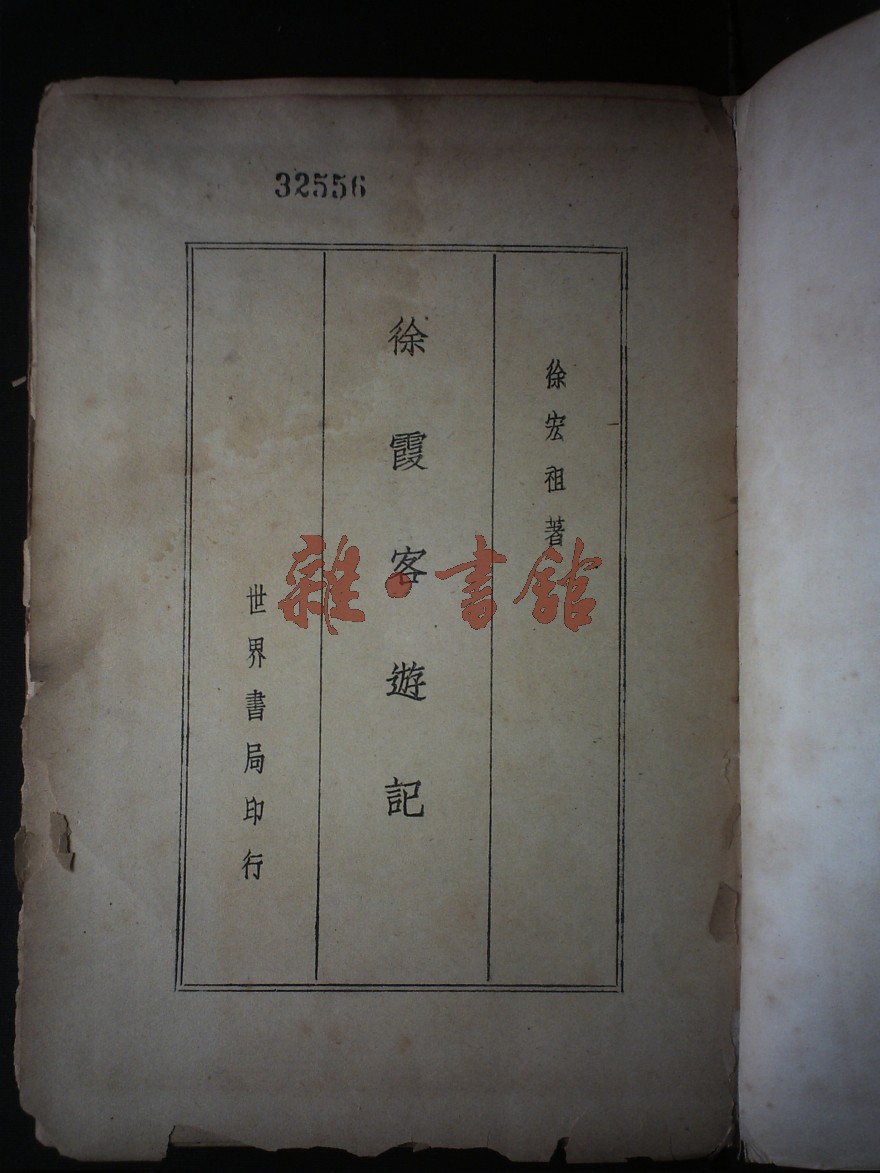 32556
徐宏祖著
徐霞客遊記
世界書局印行
雜·書舘